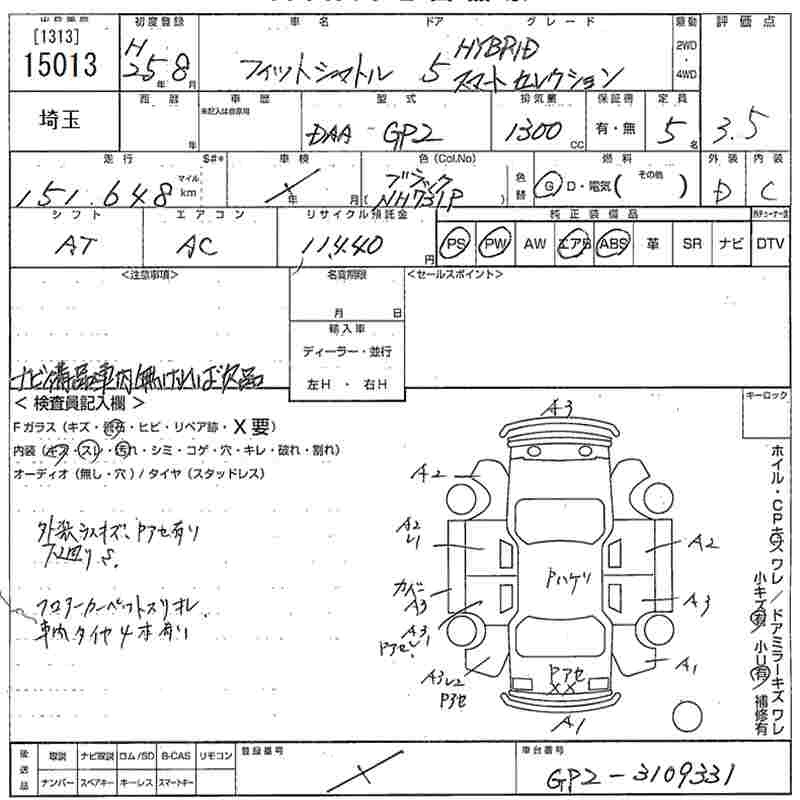 出品番号 初度登録 車名 ドア グレード 駆動 評価点
[1313]
15013
H
25年 8月
フィットシャトル 5 HYBRID
スマートセレクション
2WD
・
4WD
3.5
埼玉
西暦 車歴 型式 排気量 保証書 定員
年
未記入は自家用
DAA GP2
1300 CC
有・無
5名
走行 車検 色(Col.No) 燃料 外装 内装
151,648 マイル km
年 月
ブラック
[NH731P]
色替
G D・電気( その他 )
D
C
シフト エアコン リサイクル預託金 純正装備品
AT AC 11,440 円
PS PW AW エアB ABS 革 SR ナビ DTV
<注意事項> 名変期限 <セールスポイント>
月 日
輸入車
ディーラー・並行
左H・右H
ナビ備品車内無ければ欠品
キーロック
< 検査員記入欄 >
Fガラス(キズ・ ・ヒビ・リペア跡・X要)
内装(キズ・スレ・汚れ・シミ・コゲ・穴・キレ・破れ・割れ)
オーディオ(無し・穴)/タイヤ(スタッドレス)
外装ラスキズ、Pアセ有り
下廻りS
フロアーカーペットスリキレ
車内タイヤ4本有り
A3
A2
A2
A2
カバー
A3
Pハゲり
A3
A3
Pアセ
A1
Pアセ
XX
A1
ホイル・CPキズ ワレ/ドアミラーキズ ワレ
小キズ有/小U有/補修有
後送品
取説 ナビ取説 ロム/SD B-CAS リモコン
ナンバー スペアキー キーレス スマートキー
登録番号
車台番号
GP2-3109331